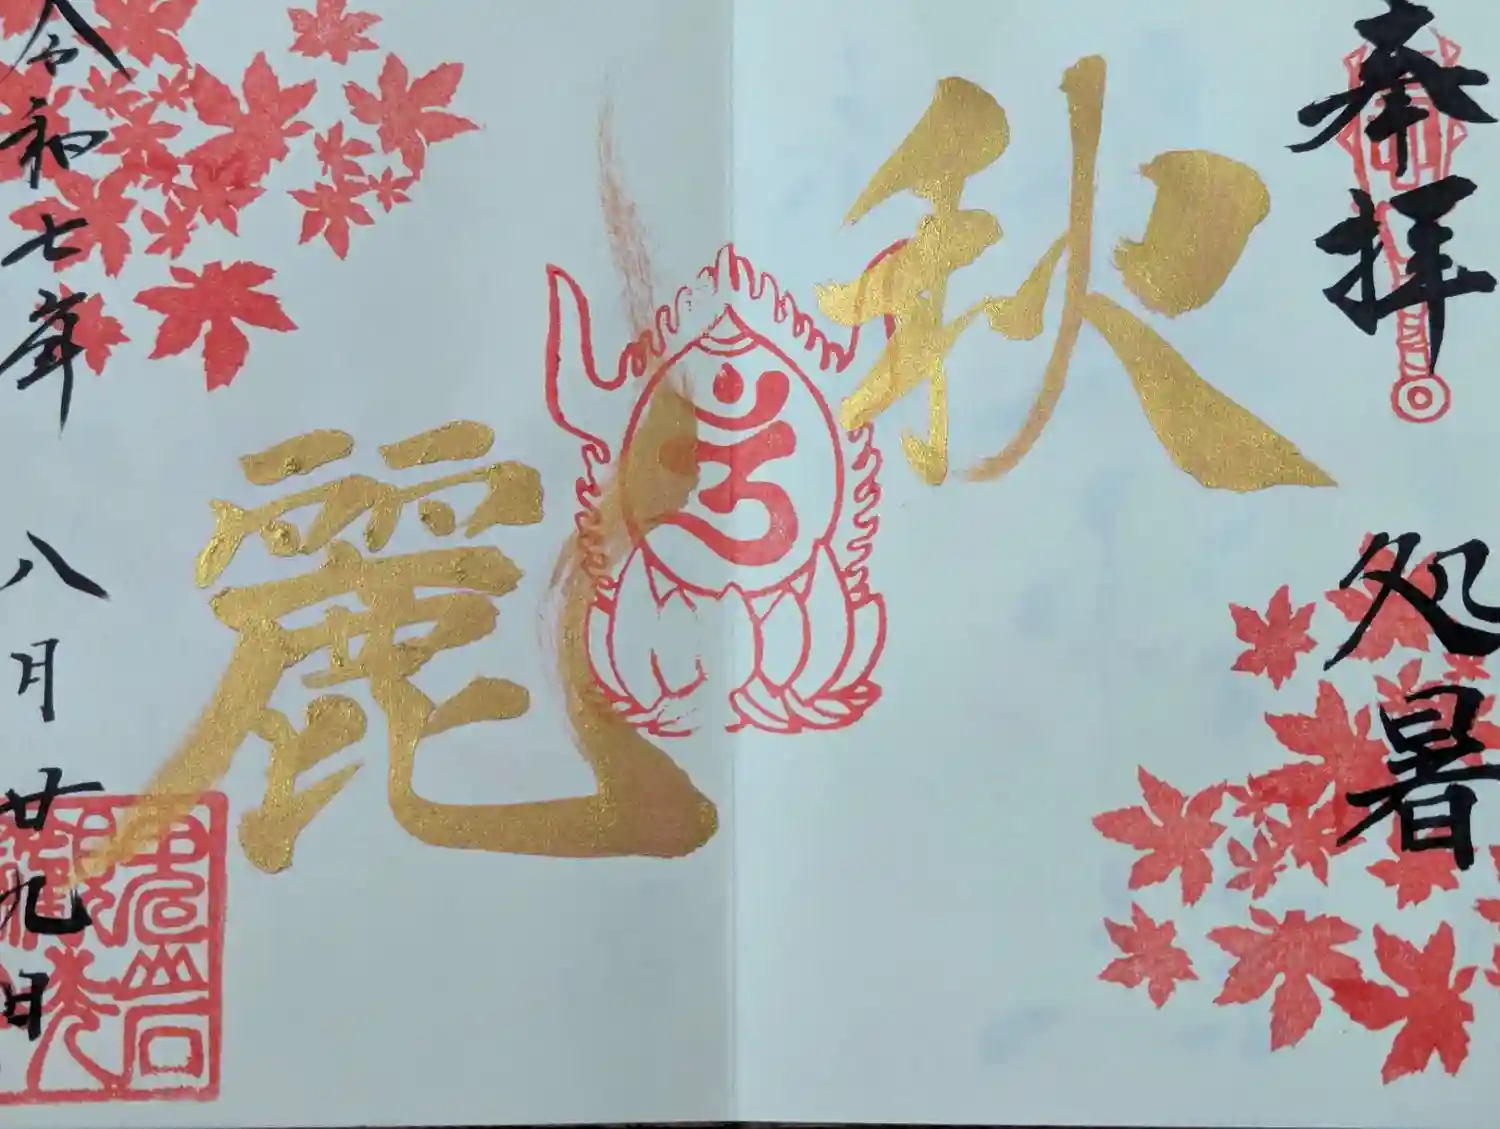 奉拝
処暑
秋麗
令和七年 八月廿九日